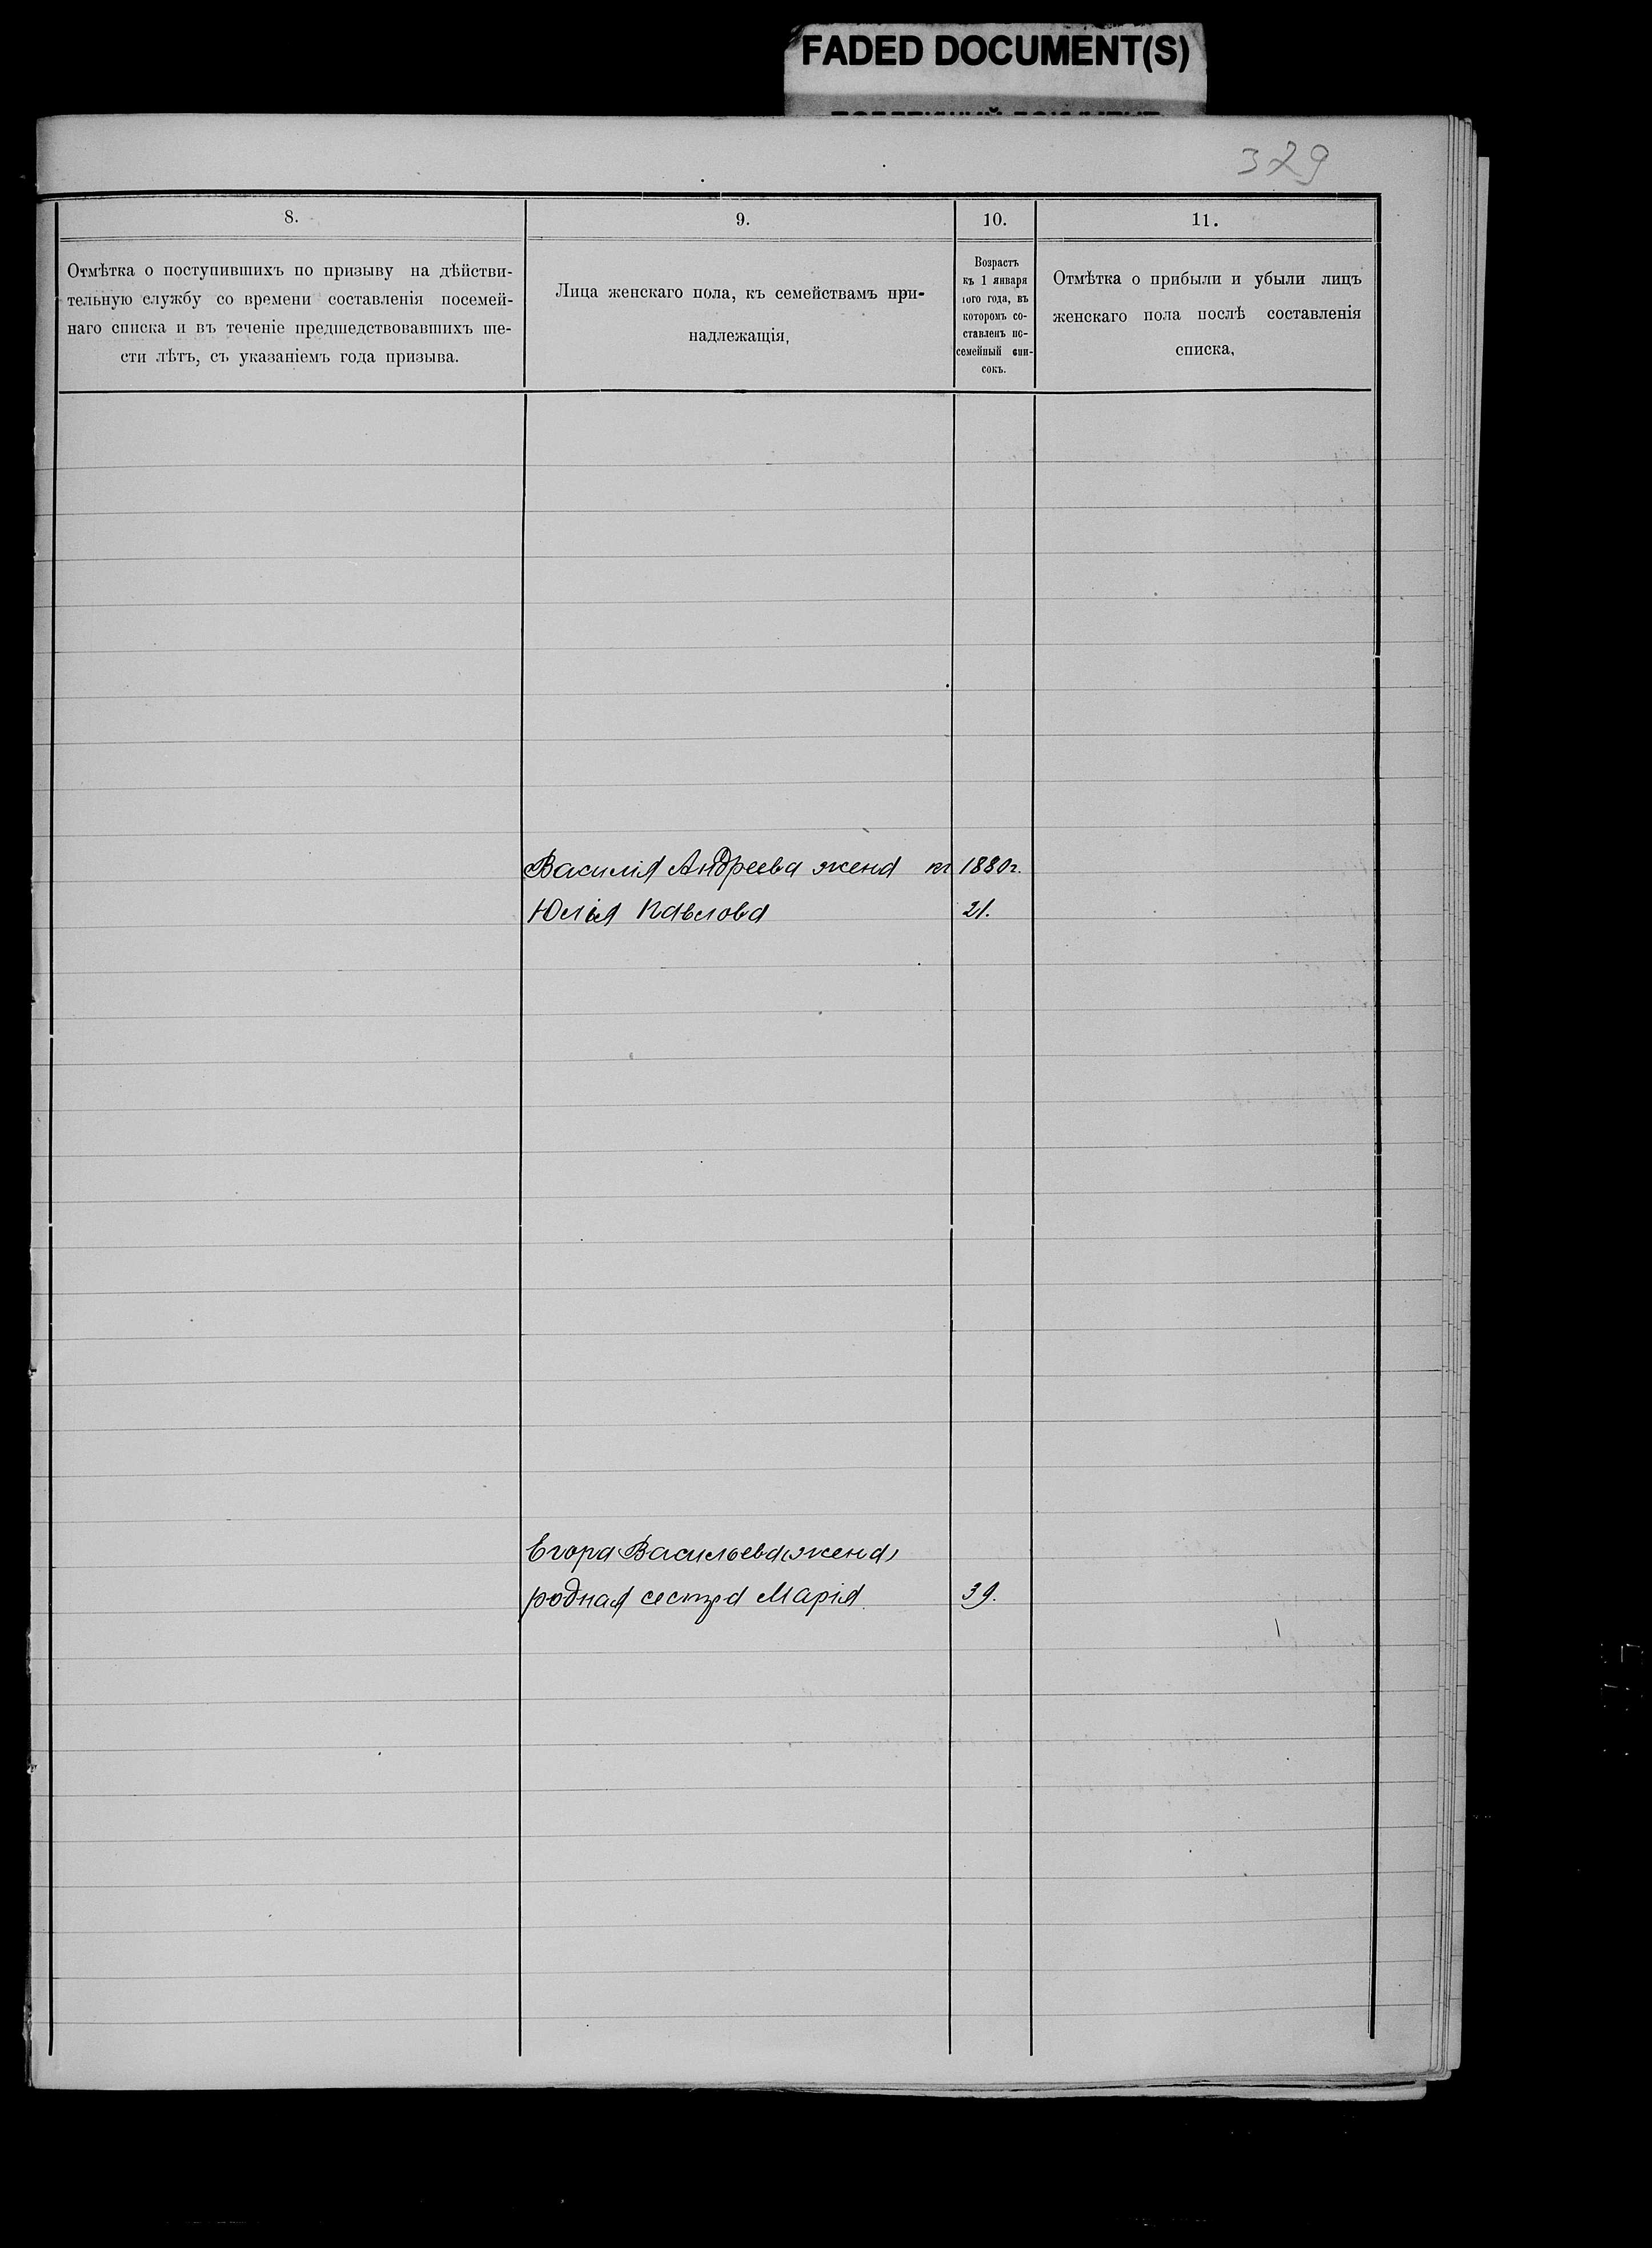 FADED DOCUMENT(S)
329
8.
9.
10.
11.
Отмѣтка о поступившихъ по призыву на дѣйстви-
тельную службу со времени составленія посемей-
наго списка и въ теченіе предшедствовавшихъ ше-
сти лѣтъ, съ указаніемъ года призыва.
Лица женскаго пола, къ семействамъ при-
надлежащія,
Возрастъ
къ 1 января
того года, въ
которомъ со-
ставленъ по-
семейный спи-
сокъ.
Отмѣтка о прибыли и убыли лицъ
женскаго пола послѣ составленія
списка,
Василія Андреева жена 1880г.
Юлія Павлова 21.
Егора Васильева (жена)
родная сестра Марія 39.